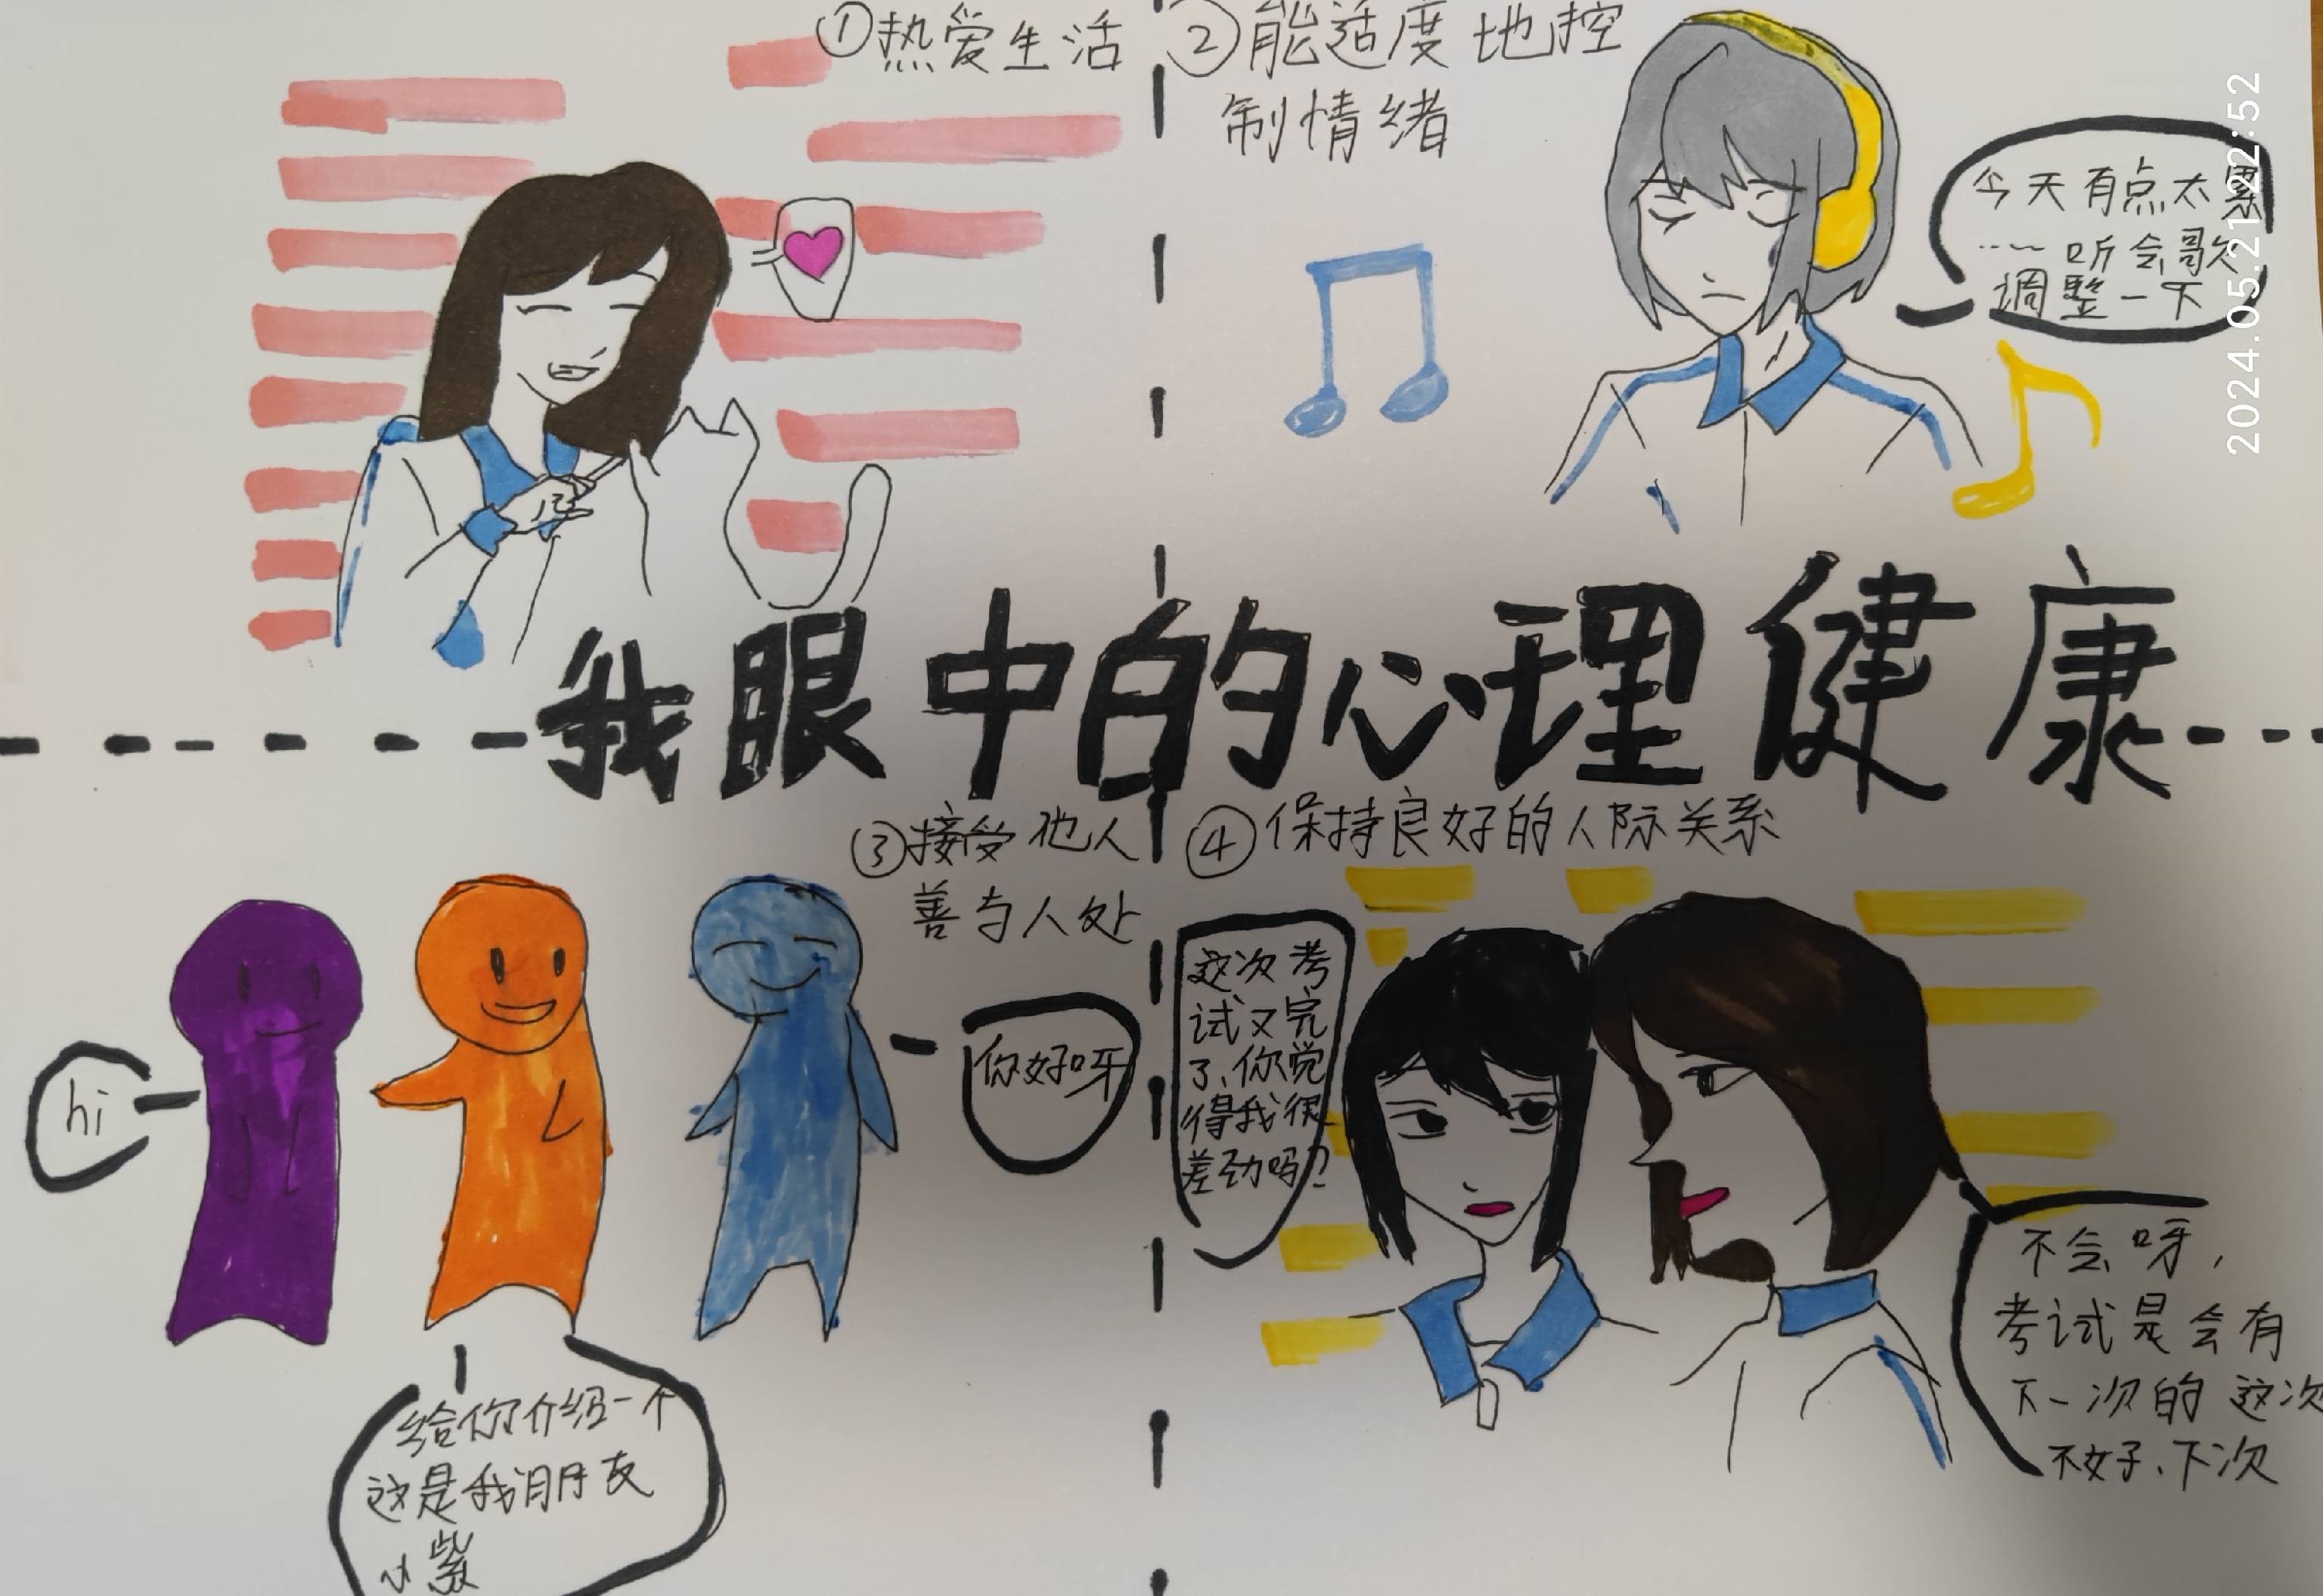 ①热爱生活
②能适度地控
制情绪
今天有点太累
……听会歌
调整一下
2024.05.21 12:52
我眼中的心理健康
③接受他人
善与人处
hi
你好呀
给你介绍一个
这是我朋友
小紫
④保持良好的人际关系
这次考
试又完
了、你觉
得我很
差劲吗？
不会呀，
考试是会有
下一次的 这次
不好、下次